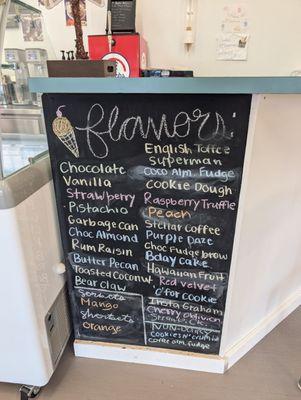 flavors
Chocolate
Vanilla
Strawberry
Pistachio
Garbage can
Choc Almond
Rum Raisin
Butter Pecan
Toasted Coconut
Bear claw
Mango
Sherbets
Orange
English Toffee
Superman
Coco Alm. Fudge
Cookie Dough
Raspberry Truffle
Peach
Stellar Coffee
Purple Daze
Choc Fudge brow
B.day cake
Hawaiian Fruit
Red velvet
C'offee cookie
Insta Graham
Cherry oblivion
NON-DAIRY
Cookies N' crumid
Coffee Alm. fudge